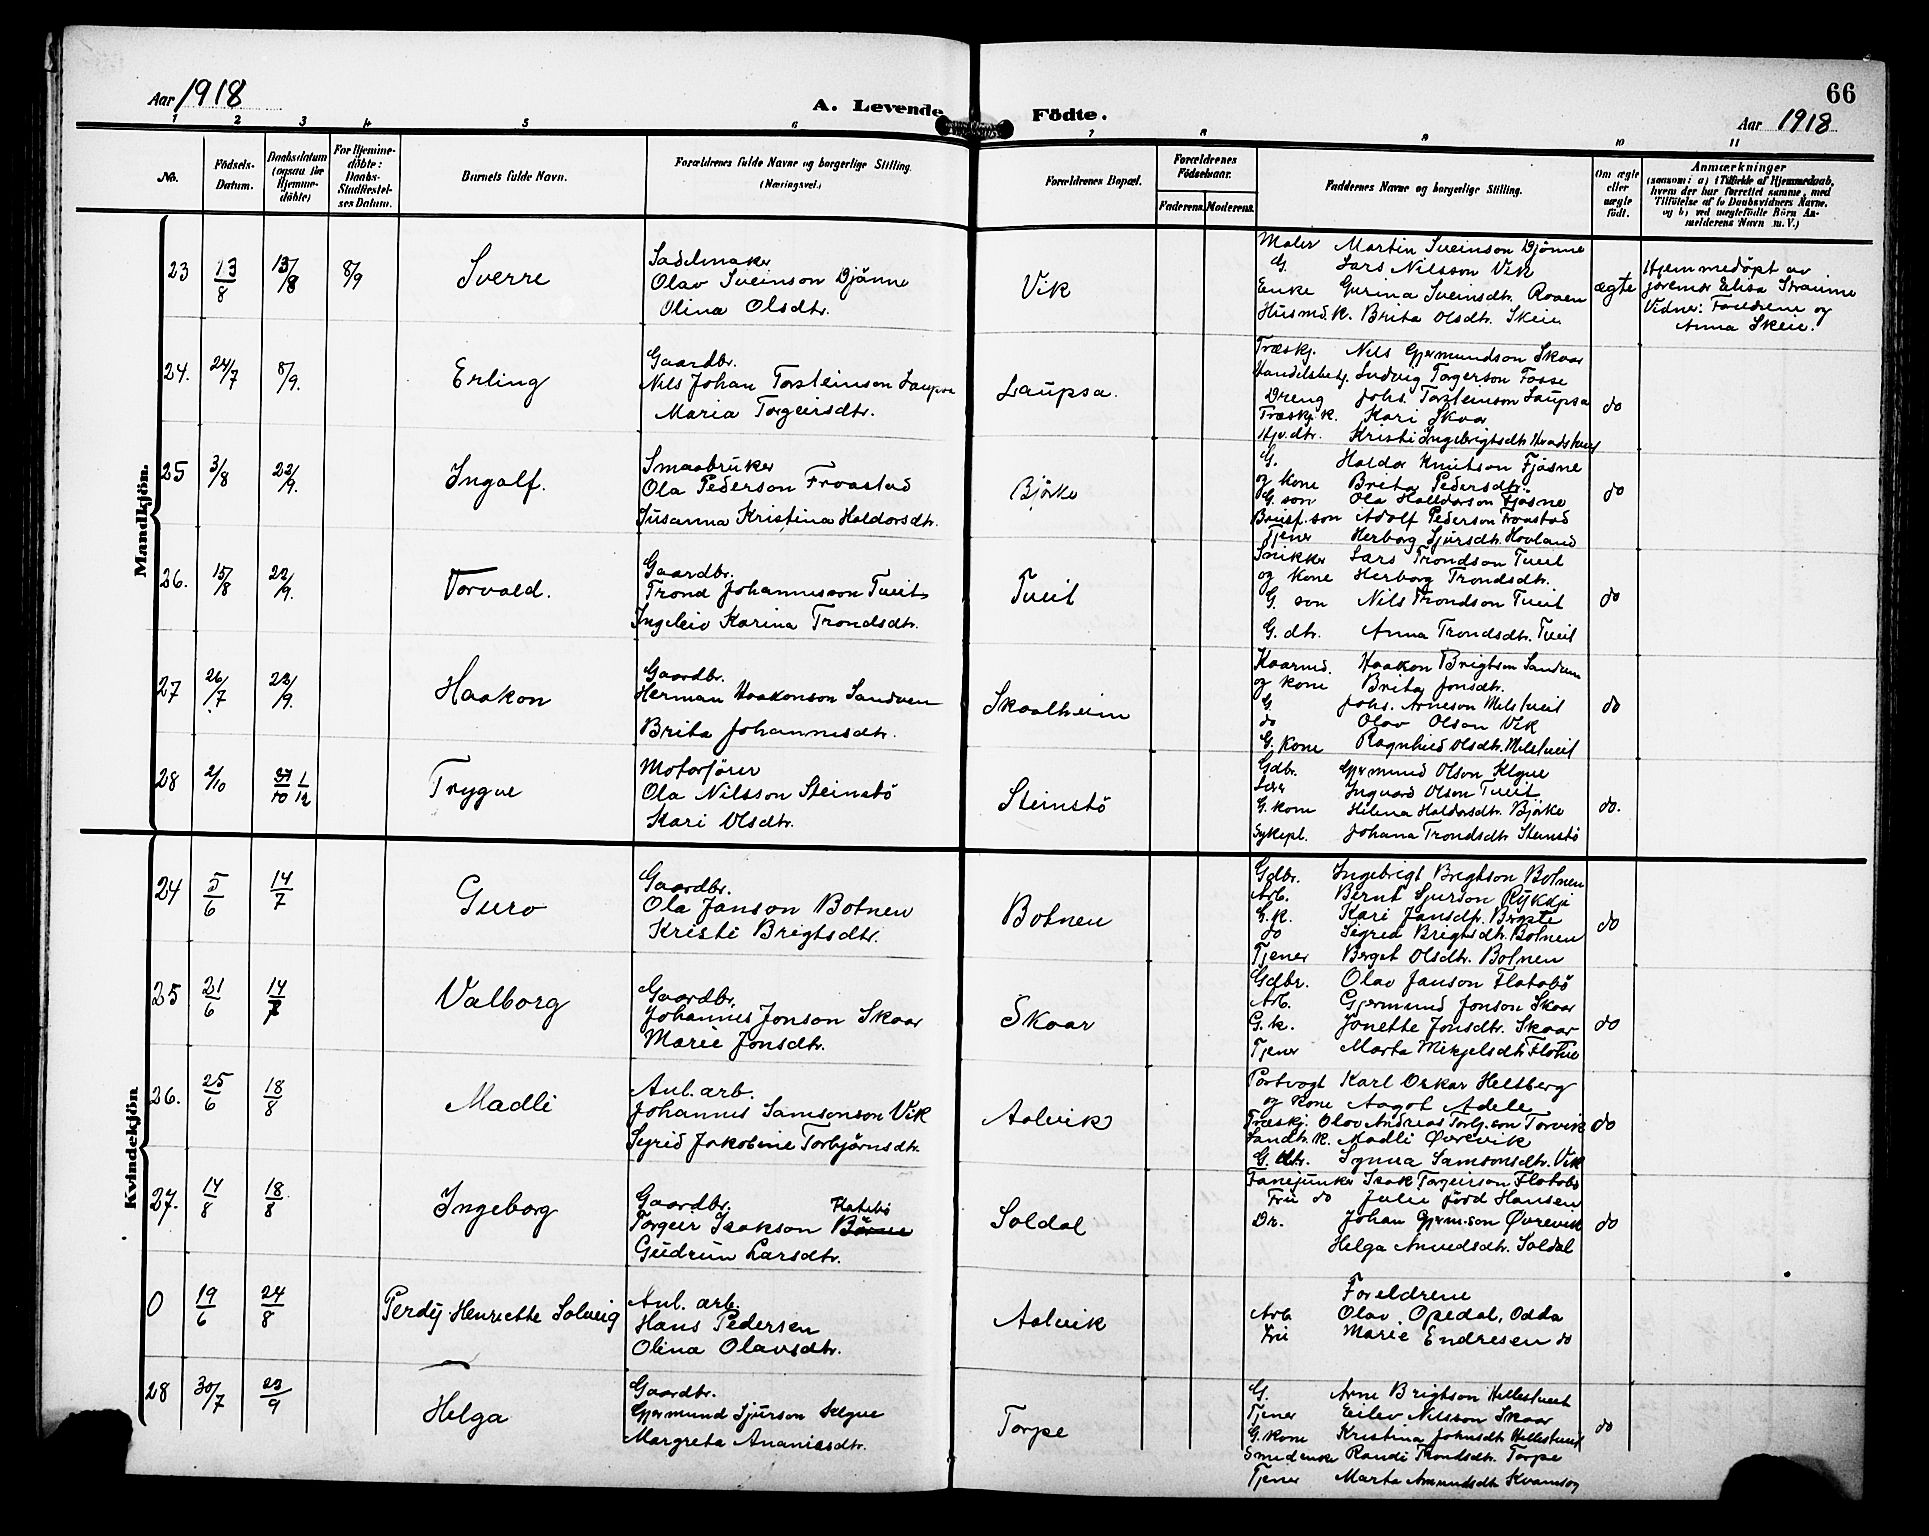 Aar 1918
A. Levende Födte.
66
Aar 1918
1 2 3 4 5 6 7 8 9 10 11
No.
Födsels-
Datum.
Daabsdatum
(ogsaa for
Hjemme-
döbte)
For Hjemme-
döbte:
Daabs-
Stadfæstel-
ses Datum.
Barnets fulde Navn.
Forældrenes fulde Navne og borgerlige Stilling.
(Næringsvei.)
Forældrenes Bopæl.
Forældrenes
Födselsaar.
Faderens. Moderens.
Faddernes Navne og borgerlige Stilling.
Om ægte
eller
uægte
födt.
Anmærkninger
(saasom: a) i Tilfælde af Hjemmedaab,
hvem der har forrettet samme, med
Tilföielse af to Daabsvidners Navne.
og b) ved uægtefödte Börn An-
melderens Navn m. V.)
Mandkjön.
23 13/8 13/8 8/9 Sverre
Sadelmaker
Olav Sveinson Djönne
Olina Olsdtr.
Vik
Maler Martin Sveinson Djönne
G. Lars Nilsson Vik
Enke Gurina Sveinsdtr. Roaen
Husmd.k. Brita Olsdtr. Skeie
ægte
Hjemmedöpt av
jordmor Elisa Straume
Vidner: Foreldrene og
Anna Skeie.
24. 24/7 8/9. Erling
Gaardbr.
Nils Johan Torsteinson Laupsa
Maria Torgeirsdtr.
Laupsa.
Træskj. Nils Gjermundson Skaar
Handelsbetj. Ludvig Torgerson Fosse
Dreng Johs. Torsteinson Laupsa
Træskj.k. Kari Skaar
Hjv.dtr. Kristi Ingebrigtsdtr.
do
25 3/8 22/9. Ingolf.
Smaabruker
Ola Pederson Froastad
Susanna Kristina Haldorsdtr.
Bjørke
G. Haldor Knutson Fjøsne
og kone Brita Pedersdtr.
G. son Ola Halldorson Fjøsne
son Adolf Pederson Froastad
Tjener Herborg Sjursdtr. Hovland
do
26. 15/8 22/9. Torvald.
Gaardbr.
Trond Johannesson Tveit
Ingeleiv Karina Trondsdtr.
Tveit
Snikker Lars Trondson Tveit
og kone Herborg Trondsdtr.
G. son Nils Trondson Tveit
G. dtr. Anna Trondsdtr. Tveit
do
27 26/7 22/9. Haakon
Gaardbr.
Herman Haakonson Sandven
Brita Johannesdtr.
Skaalheim
Kaarmd. Haakon Brigtson Sandven
og kone Brita Jonsdtr.
G. Johs. Arneson Mélstveit
do Olav Olson Vik
G. kone Ragnhild Olsdtr. Mélstveit
do
28 2/10 1/12 Trygve
Motorfører
Ola Nilsson Steinstö
Kari Olsdtr.
Steinstö
Gdbr. Gjermund Olson Klyve
Lær. Ingvard Olson Tveit
G.kone Helena Haldorsdtr. Bjørke
Sykepl. Johana Trondsdtr. Steinstö
do.
Kvindekjön
24 5/6 14/7 Guro
Gaardbr.
Ola Janson Botnen
Kristi Brigtsdtr.
Botnen
Gdbr. Ingebrigt Brigtson Botnen
Arb. Bernt Sjurson
G.k. Kari Jansdtr.
do Sigrid Brigtsdtr. Botnen
Tjener Berget Olsdtr. Botnen
do
25 21/6 14/7 Valborg
Gaardbr.
Johannes Jonson Skaar
Marie Jonsdtr.
Skaar
Gdbr. Olav Janson Flatabö
Arb. Gjermund Jonson Skaar
G.k. Jonette Jonsdtr. Skaar
Tjener Marta Mikjelsdtr.
do
26. 25/6 18/8 Madli
Anl. arb.
Johannes Samsonson Vik
Sigrid Jakobine Torbjörnsdtr.
Aalvik
Portvagt Karl Oskar Heltberg
og kone Aagot Adele
Træskj. Olav Andreas Torbj.son Torvik
Landh.k. Madli Øvrevik
G. dtr. Synva Samsonsdtr. Vik
do
27. 14/8 18/8 Ingeborg
Gaardbr. Flatebö
Torgeir Isakson Börve
Gudrun Larsdtr.
Soldal
Fanejunker Isak Torgeirson Flatabö
Fru do Julie född Hansen
Dr. Johan Gjerm.son Øvrevik
Helga Amundsdtr. Soldal
do
0 19/6 24/8 Perdij Henriette Solveig
Anl. arb.
Hans Pedersen
Olina Olavsdtr.
Aalvik
Foreldrene
Arb Olav Opedal, Odda
Fru Marie Endresen do
28 30/7 29/9 Helga
Gaardbr.
Gjermund Sjurson Klyve
Margreta Ananiasdtr.
Torpe
G. Arne Brigtson Hellestveit
Tjener Eilev Nilsson Skaar
G.kone Kristina Johnsdtr. Hellestveit
Smedenke Randi Trondsdtr. Torpe
Tjener Marta Amundsdtr.
do